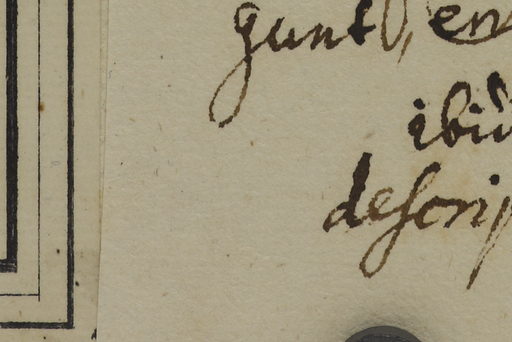 gunt, em
ibiu
descrip